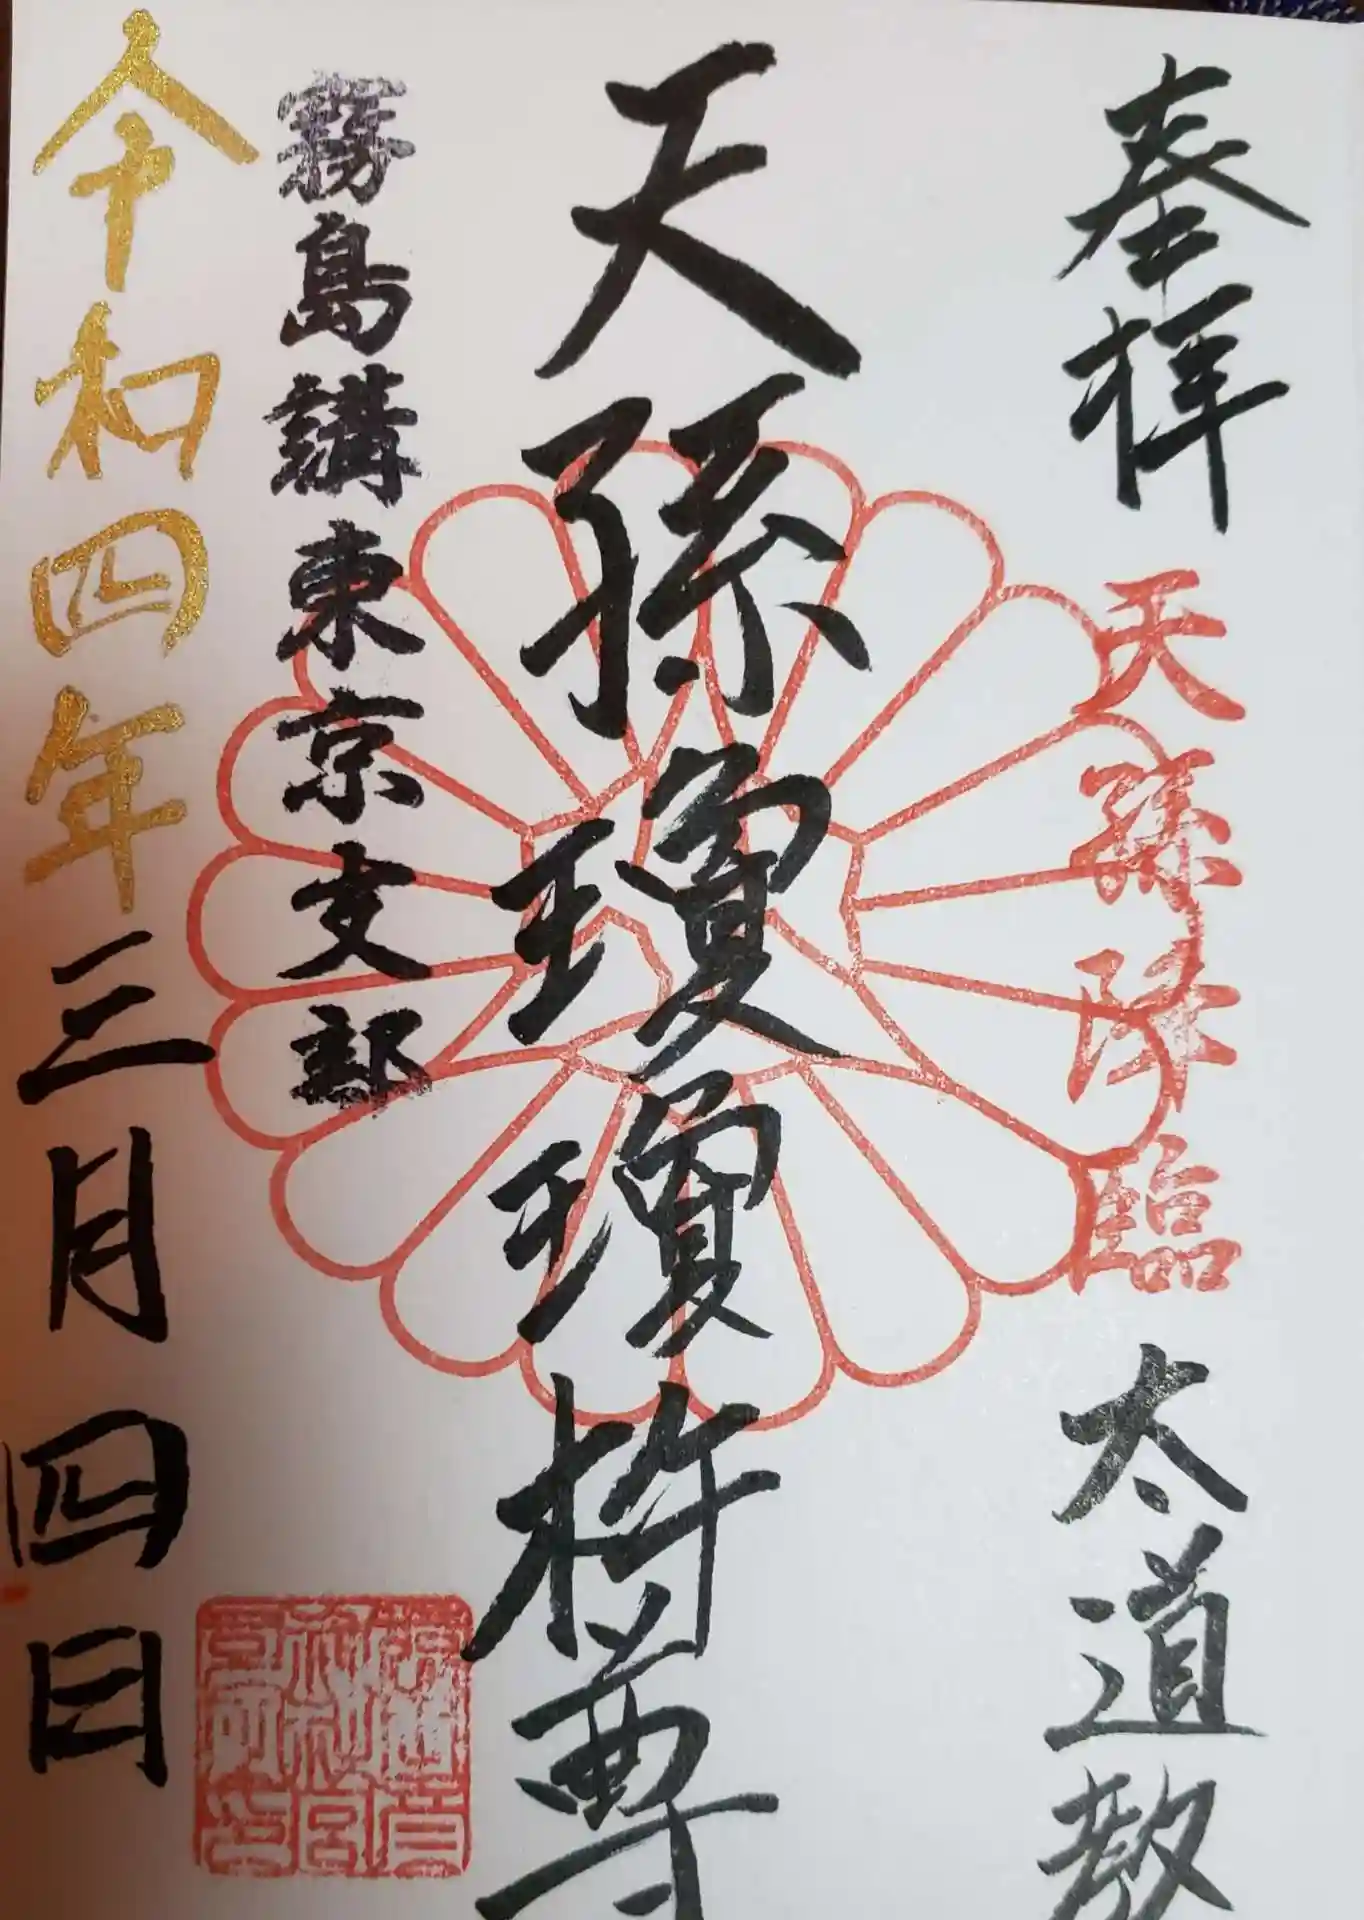 奉拝
天孫降臨
太道教
天孫瓊瓊杵尊
霧島講東京支部
令和四年三月四日